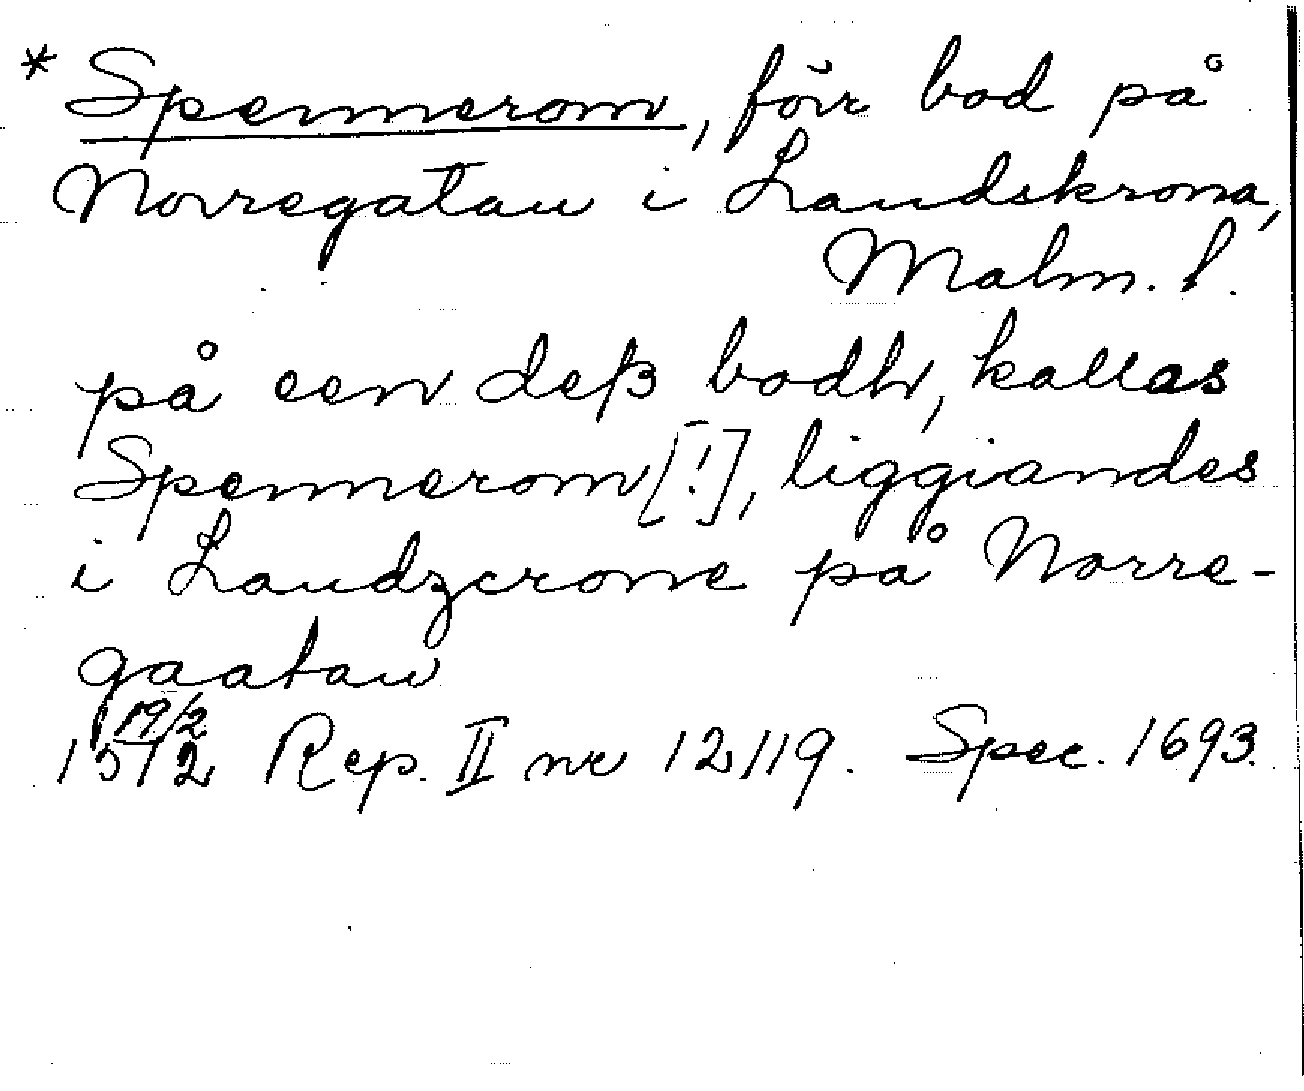 * Spennerom, förr bod på
Norregatan i Landskrona,
Malm. l.
på een deß bodh, kallas
Spennerom [!], liggiandes
i Landzcrone på Norre-
gaatan
19/2
1512 Rep. II nr 12119. Spec. 1693.